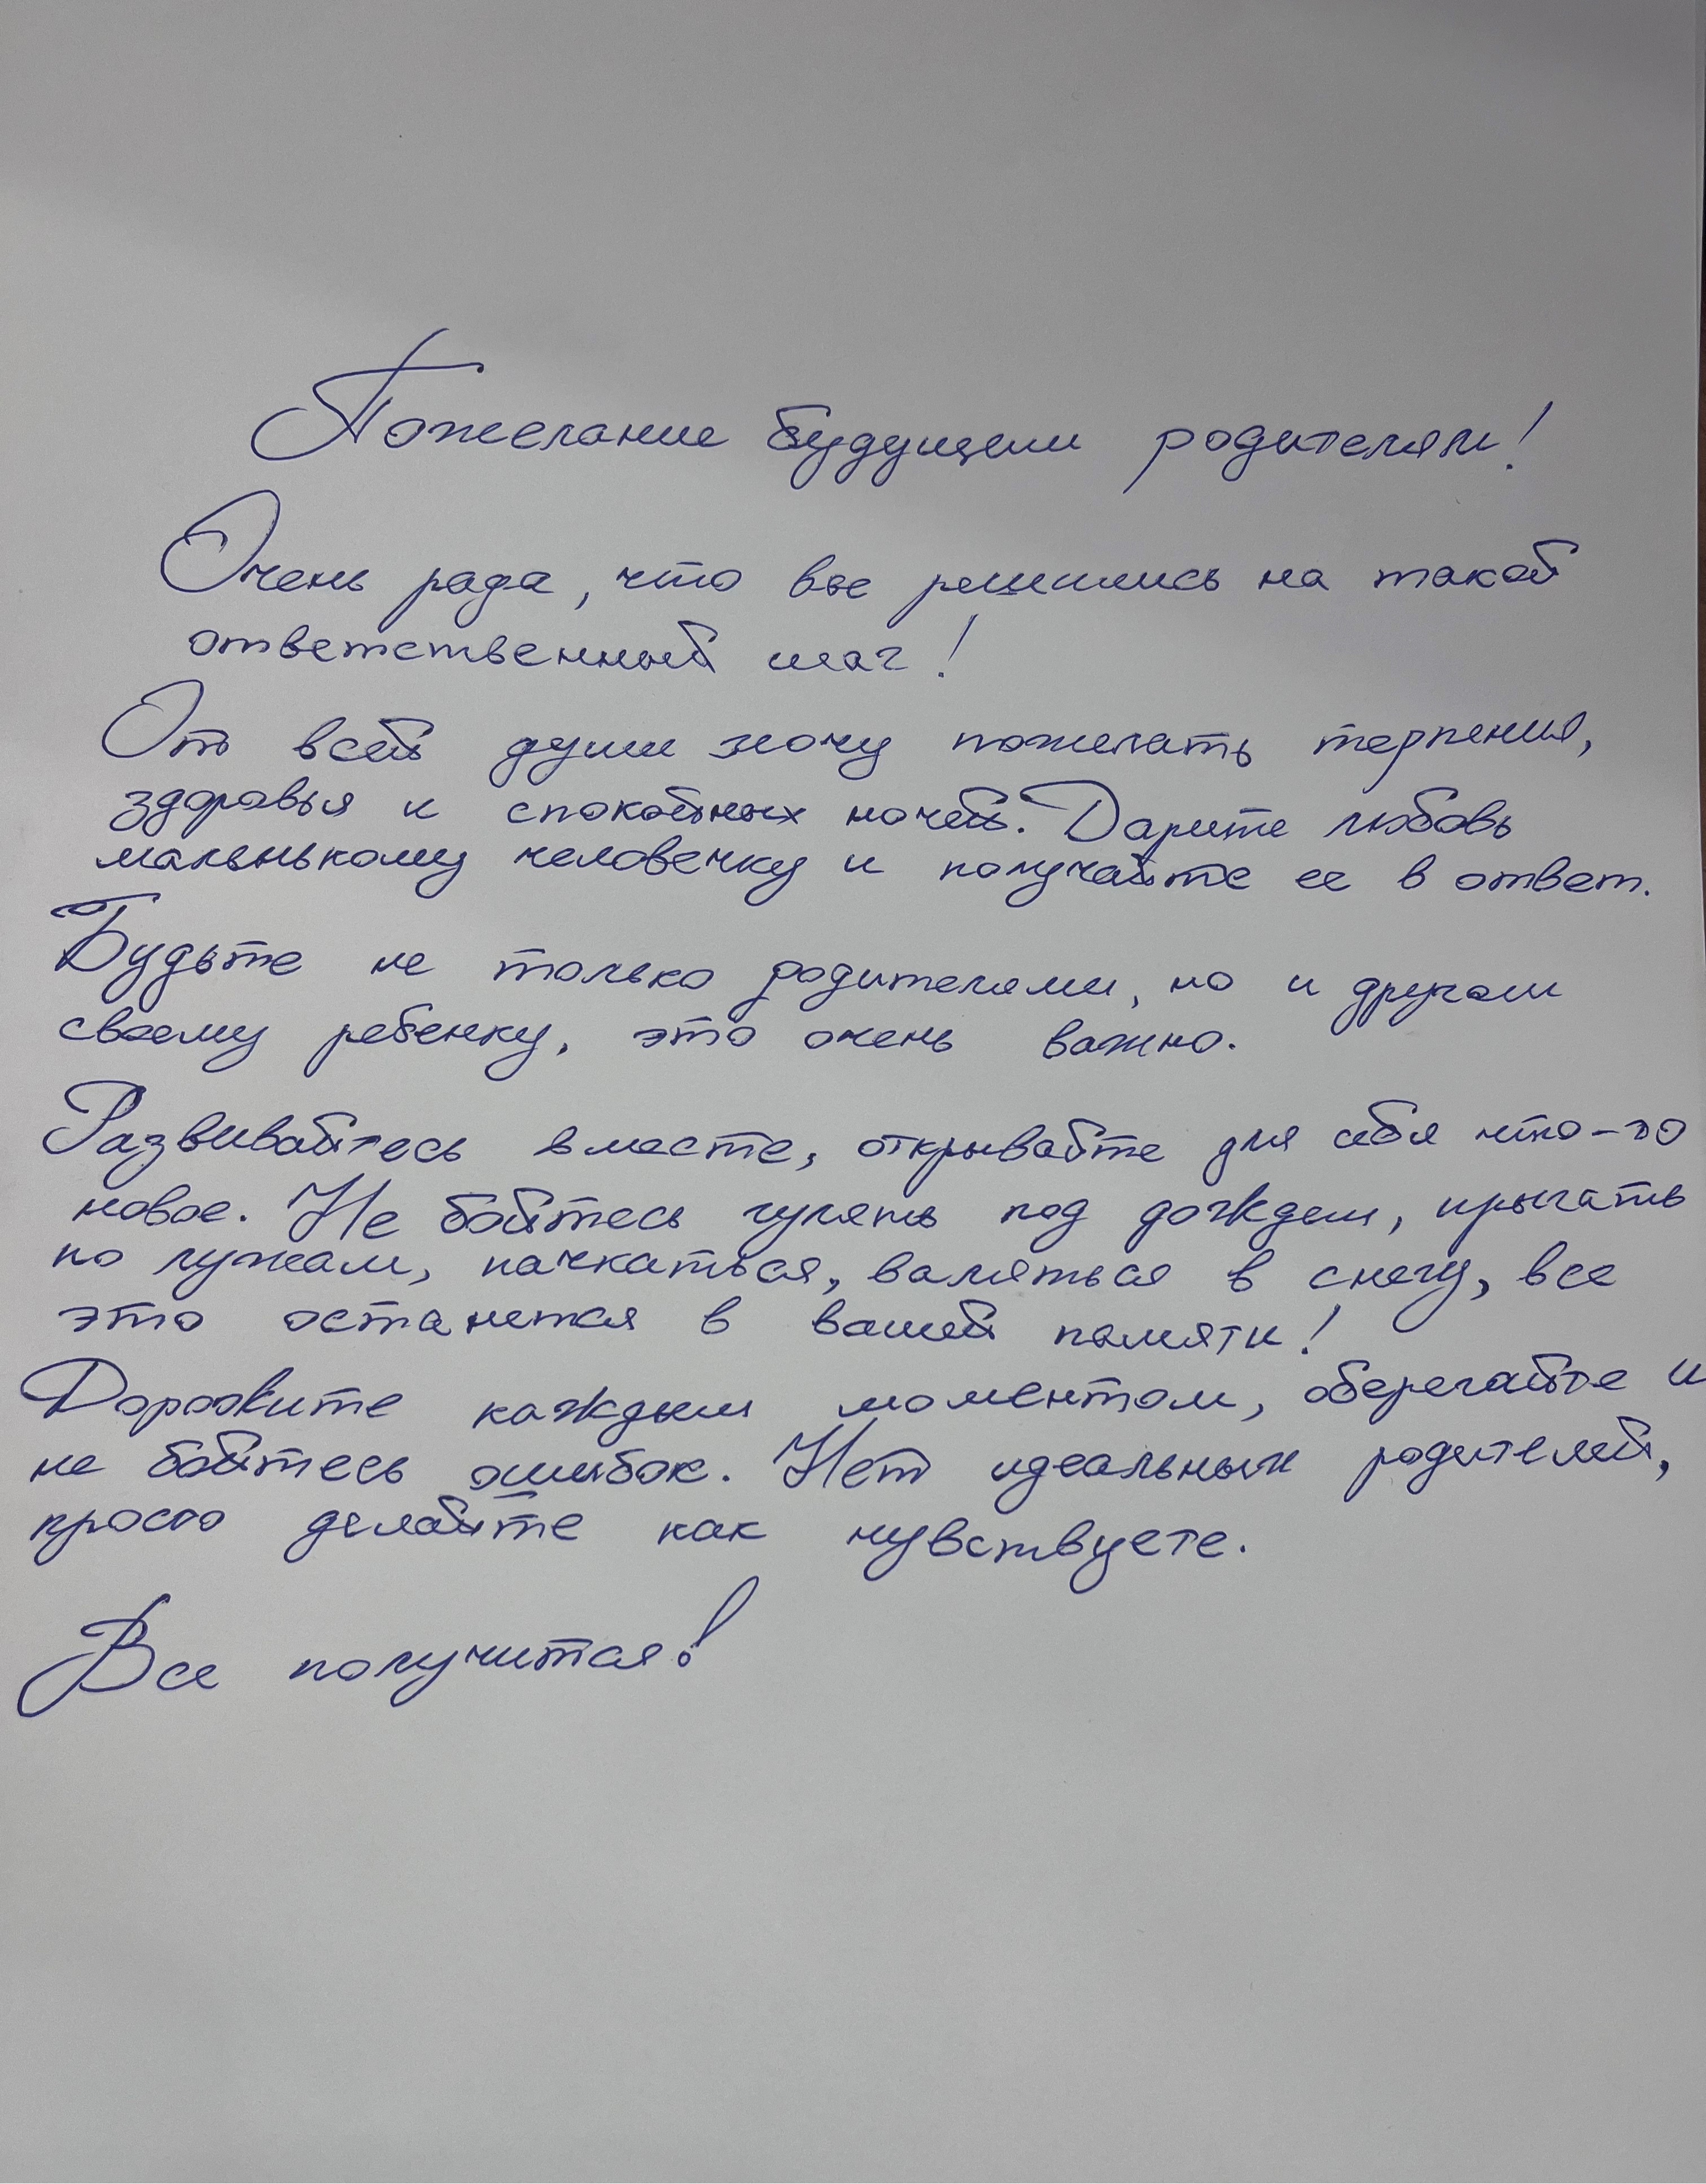 Пожелание будущим родителям!
Очень рада, что вы решились на такой
ответственный шаг!
От всей души хочу пожелать терпения,
здоровья и спокойных ночей. Дарите любовь
маленькому человечку и получайте ее в ответ.
Будьте не только родителями, но и другом
своему ребенку, это очень важно.
Развивайтесь вместе, открывайте для себя что-то
новое. Не бойтесь гулять под дождем, прыгать
по лужам, пачкаться, валяться в снегу, все
это останется в вашей памяти!
Дорожите каждым моментом, оберегайте и
не бойтесь ошибок. Нет идеальных родителей,
просто делайте как чувствуете.
Все получится!